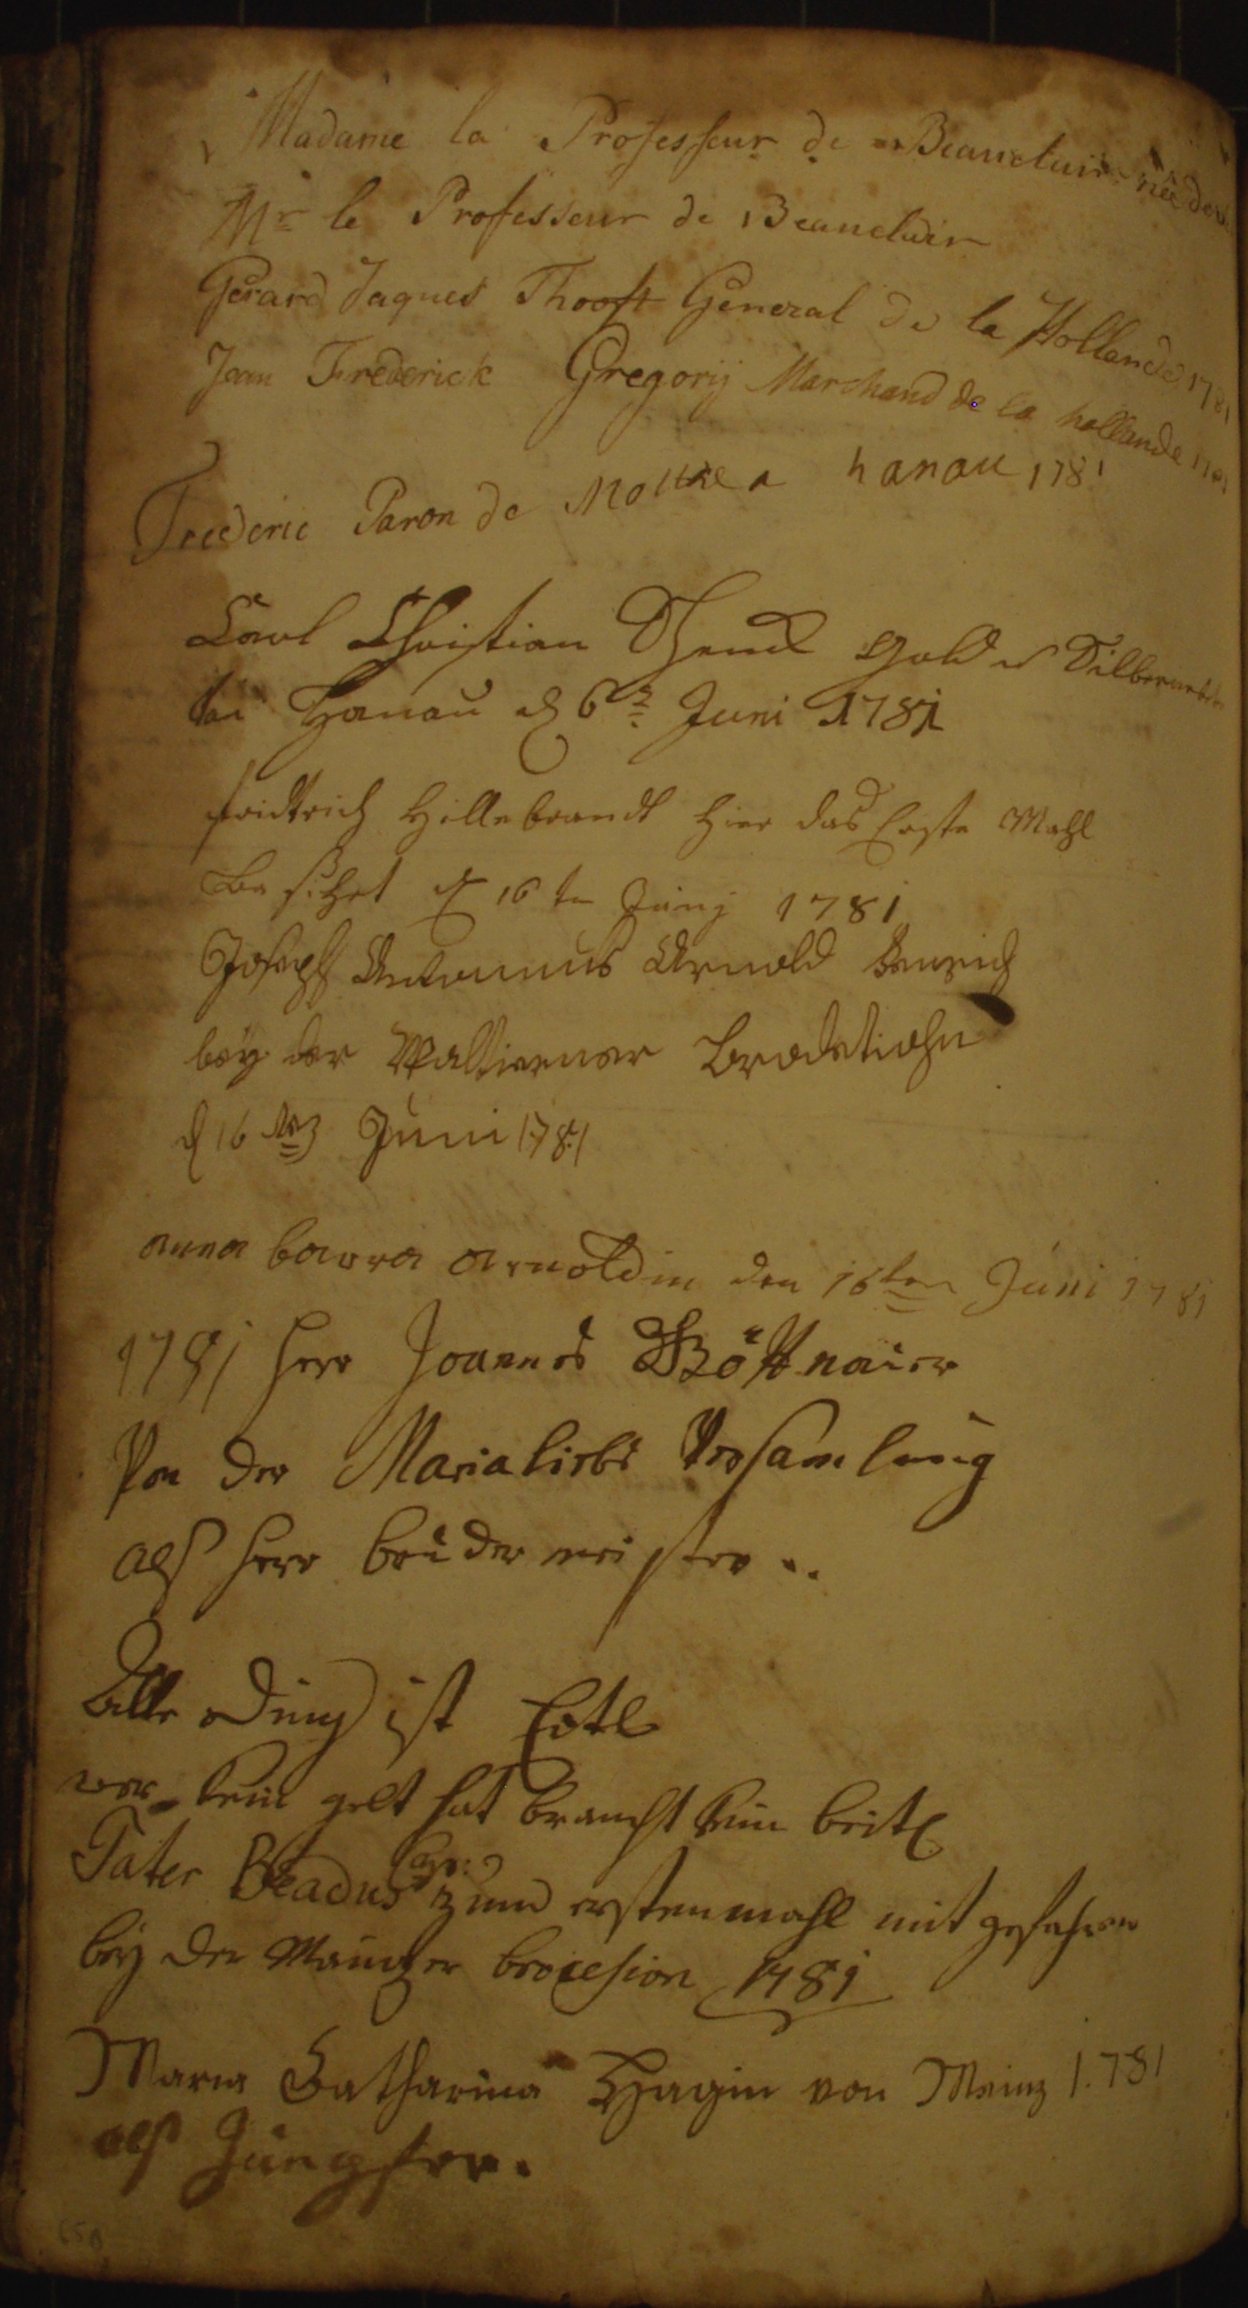 Madame la Professeur de Beauclair née de
Mr le Professeur de Beauclair
Gerard Jaques Thooft General de la Hollande 1781
Jean Frederick Gregorij Marchand de la hollande 1781
Frederic Paron de Moltke a hanau 1781
Carl Christian Schenck Gold u Silberarbeiter
bei Hanau d 6t Juni 1781
fridtrich Hillebrandt hier das Erste Mahl
d 16 ten Junij 1781
Joseph Antonius Arnold
bey der Waltierner Brodetiohn
d 16 ten Juni 1781
anna barra arnoldin den 16ten Juni 1781
1781 herr Joannes
Von der Marialiebs Versamlung
alß herr bruder meister ..
Alle Ding ist Eitel
wer kein gelt hat braucht kein beitel
Pater Beadus cap: zum erstenmahl mit gefahren
bey der Maintzer brocesion 1781
Maria Catharina Hagin von Mainz 1.781
alß Jungfer.